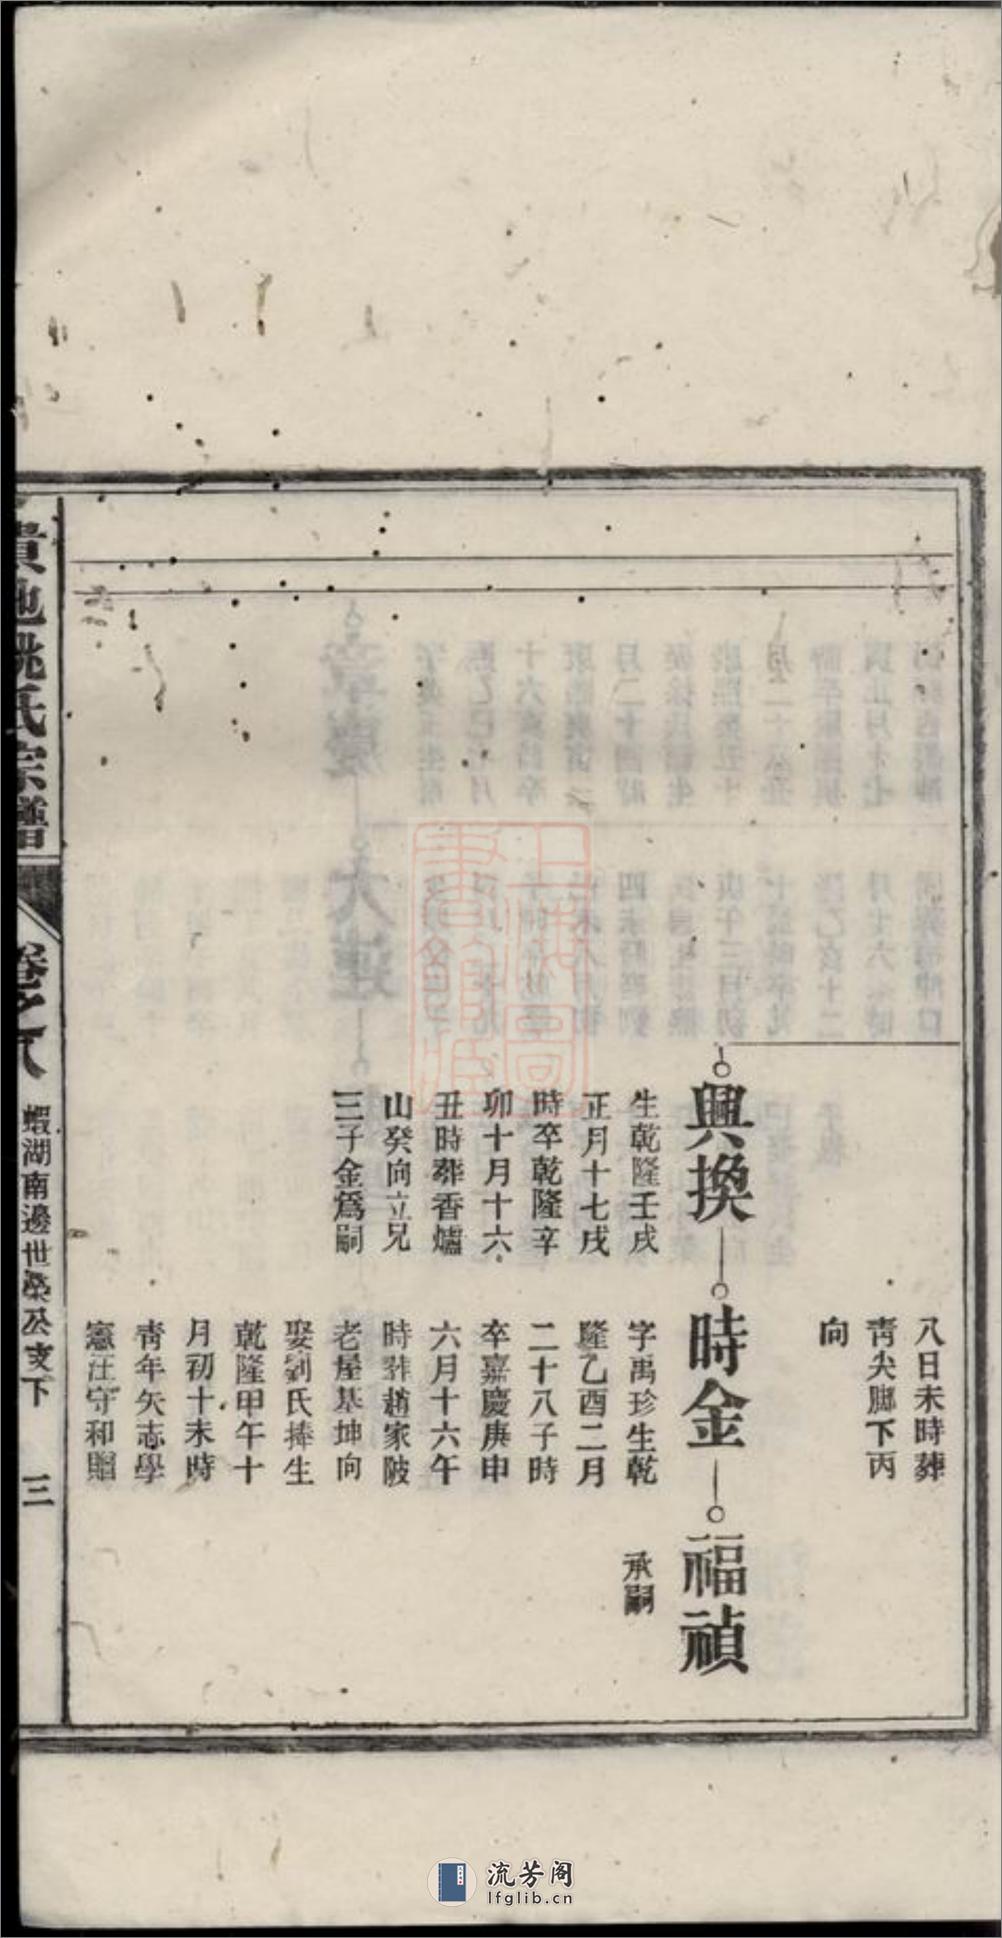 八日未時葬
靑尖腳下丙
向
興換
生乾隆壬戌
正月十七戌
時卒乾隆辛
卯十月十六
丑時葬香爐
山癸向立兄
三子金爲嗣
時金
字禹珍生乾
隆乙酉二月
二十八子時
卒嘉慶庚申
六月十六午
時葬趙家陂
老屋基坤向
娶劉氏捧生
乾隆甲午十
月初十未時
靑年矢志學
憲汪守和贈
福禎
承嗣
貴池姚氏宗譜
卷之八
蝦湖南邊世榮公支下
三
上海圖書館藏
流芳阁
lfglib.cn